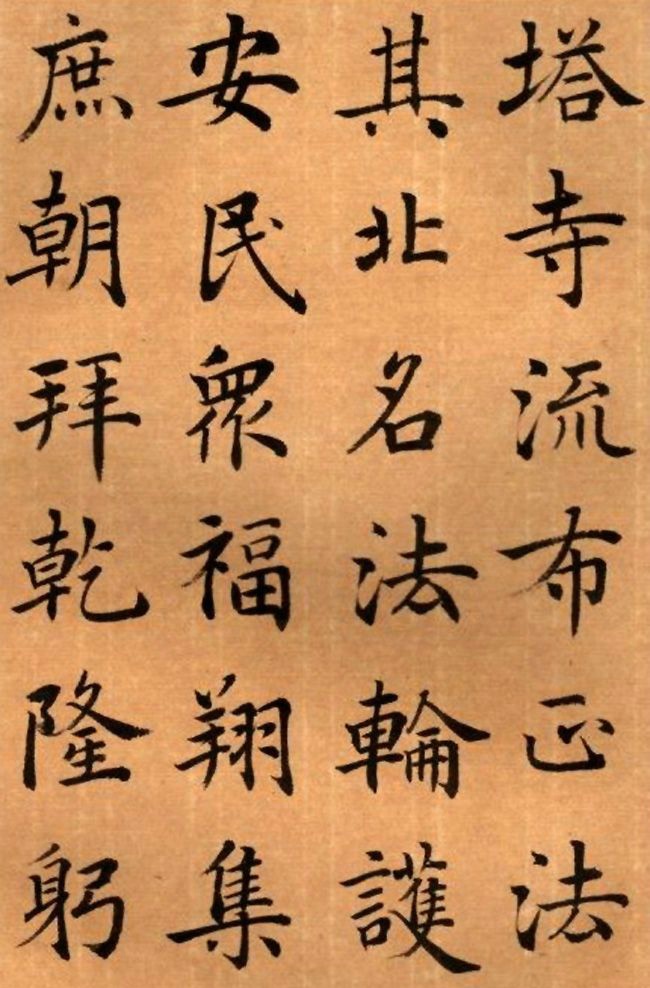 塔寺流布正法
其北名法輪護
安民衆福翔集
庶朝拜乾隆躬